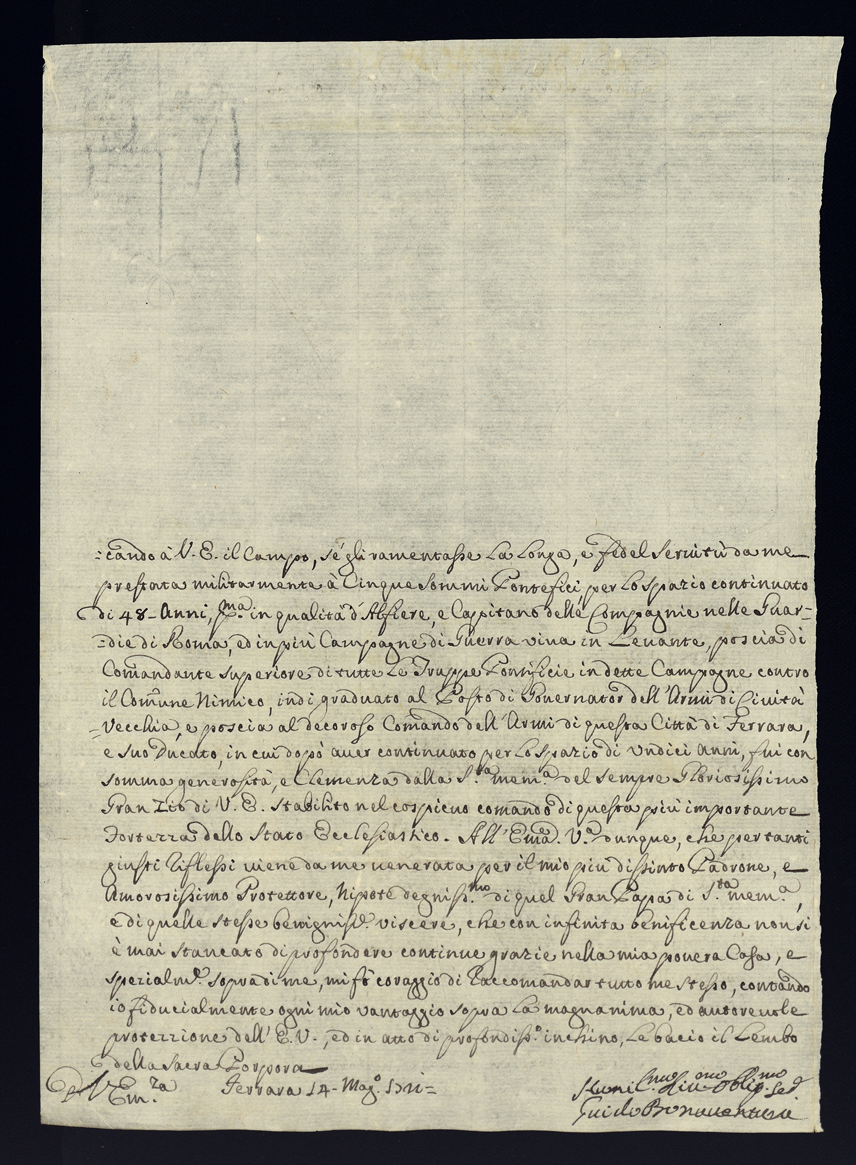 :cando à V. E. il Campo, sé gli ramentasse La Longa, e fedel Seruitù da me
prestata militarmente à Cinque Sommi Pontefici per Lo spazio continuato
di 48- Anni, pma. in qualità d'Alfiere, e Cappitano delle Compagnie nelle Guar=
=die di Roma, ed in più Campagne di Guerra viva in Levante, poscia di
Comandante superiore di tutte Le Truppe Pontificie in dette Campagne contro
il Comune Nimico, indi graduato al Posto di Gouernator dell'Armi di Ciuità
=Vecchia, e poscia al decoroso Comando dell'Armi di questa Città di Ferrara,
e suo Ducato, in cui dopò auer continuato per Lo spazio di vndici Anni, fui con
somma generosità, e Clemenza dalla S.ta mem.a del sempre Gloriosissimo
Gran Zio di V. E. stabilito nel cospicuo comando di questa più importante
Fortezza dello Stato Ecclesiastico. All' Ema. V.a dunque, che per tanti
giusti riflessi viene da me uenerata per il mio più distinto Padrone, e
Amorosissimo Protettore, Nipote degniss.mo di quel Gran Papa di S.ta mem.a,
e di quelle stesse benigniss.e viscere, che con infinita beneficenza non si
è mai stancato di profondere continue grazie nella mia pouera Casa, e
spezialm.e sopra di me, mi fò coraggio di Raccomandar tutto me stesso, contando
io fiducialmente ogni mio vantaggio sopra La magnanima, ed autoreuole
protezzione dell' E. V., ed in atto di profondiss.o inchino, Le bacio il Lembo
della Sacra Porpora
Di V. Em.za Ferrara 14- Mag.o
Humil.mo Obblig.mo
Guido Bonauentura